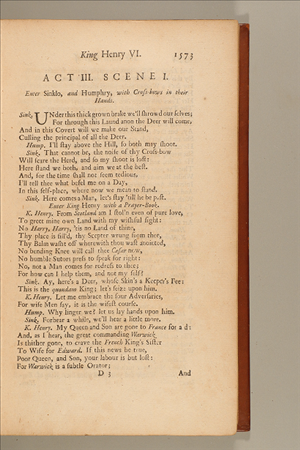 King Henry VI. 1573
ACT III. SCENE I.
Enter Sinklo, and Humphry, with Cross-bows in their
Hands.
Sink. UNder this thick grown brake we'll shrowd our selves;
For through this Laund anon the Deer will come,
And in this Covert will we make our Stand,
Culling the principal of all the Deer.
Hump. I'll stay above the Hill, so both may shoot.
Sink. That cannot be, the noise of thy Cross-bow
Will scare the Herd, and so my shoot is lost:
Here stand we both, and aim we at the best.
And, for the time shall not seem tedious,
I'll tell thee what befel me on a Day,
In this self-place, where now we mean to stand.
Sink. Here comes a Man, let's stay 'till he be past.
Enter King Henry with a Prayer-Book.
K. Henry. From Scotland am I stoll'n even of pure love,
To greet mine own Land with my wishful sight:
No Harry, Harry, 'tis no Land of thine,
Thy place is fill'd, thy Scepter wrung from thee,
Thy Balm washt off wherewith thou wast anointed,
No bending Knee will call thee Cæsar now,
No humble Suitors press to speak for right:
No, not a Man comes for redress to thee;
For how can I help them, and not my self?
Sink. Ay, here's a Deer, whose Skin's a Keeper's Fee:
This is the quondam King; let's seize upon him.
K. Henry. Let me embrace the four Adversaries,
For wise Men say, it is the wisest course.
Hump. Why linger we? let us lay hands upon him.
Sink. Forbear a while, we'll hear a little more.
K. Henry. My Queen and Son are gone to France for aid:
And, as I hear, the great commanding Warwick
Is thither gone, to crave the French King's Sister
To Wife for Edward. If this news be true,
Poor Queen, and Son, your labour is but lost:
For Warwick is a subtle Orator;
D 3 And